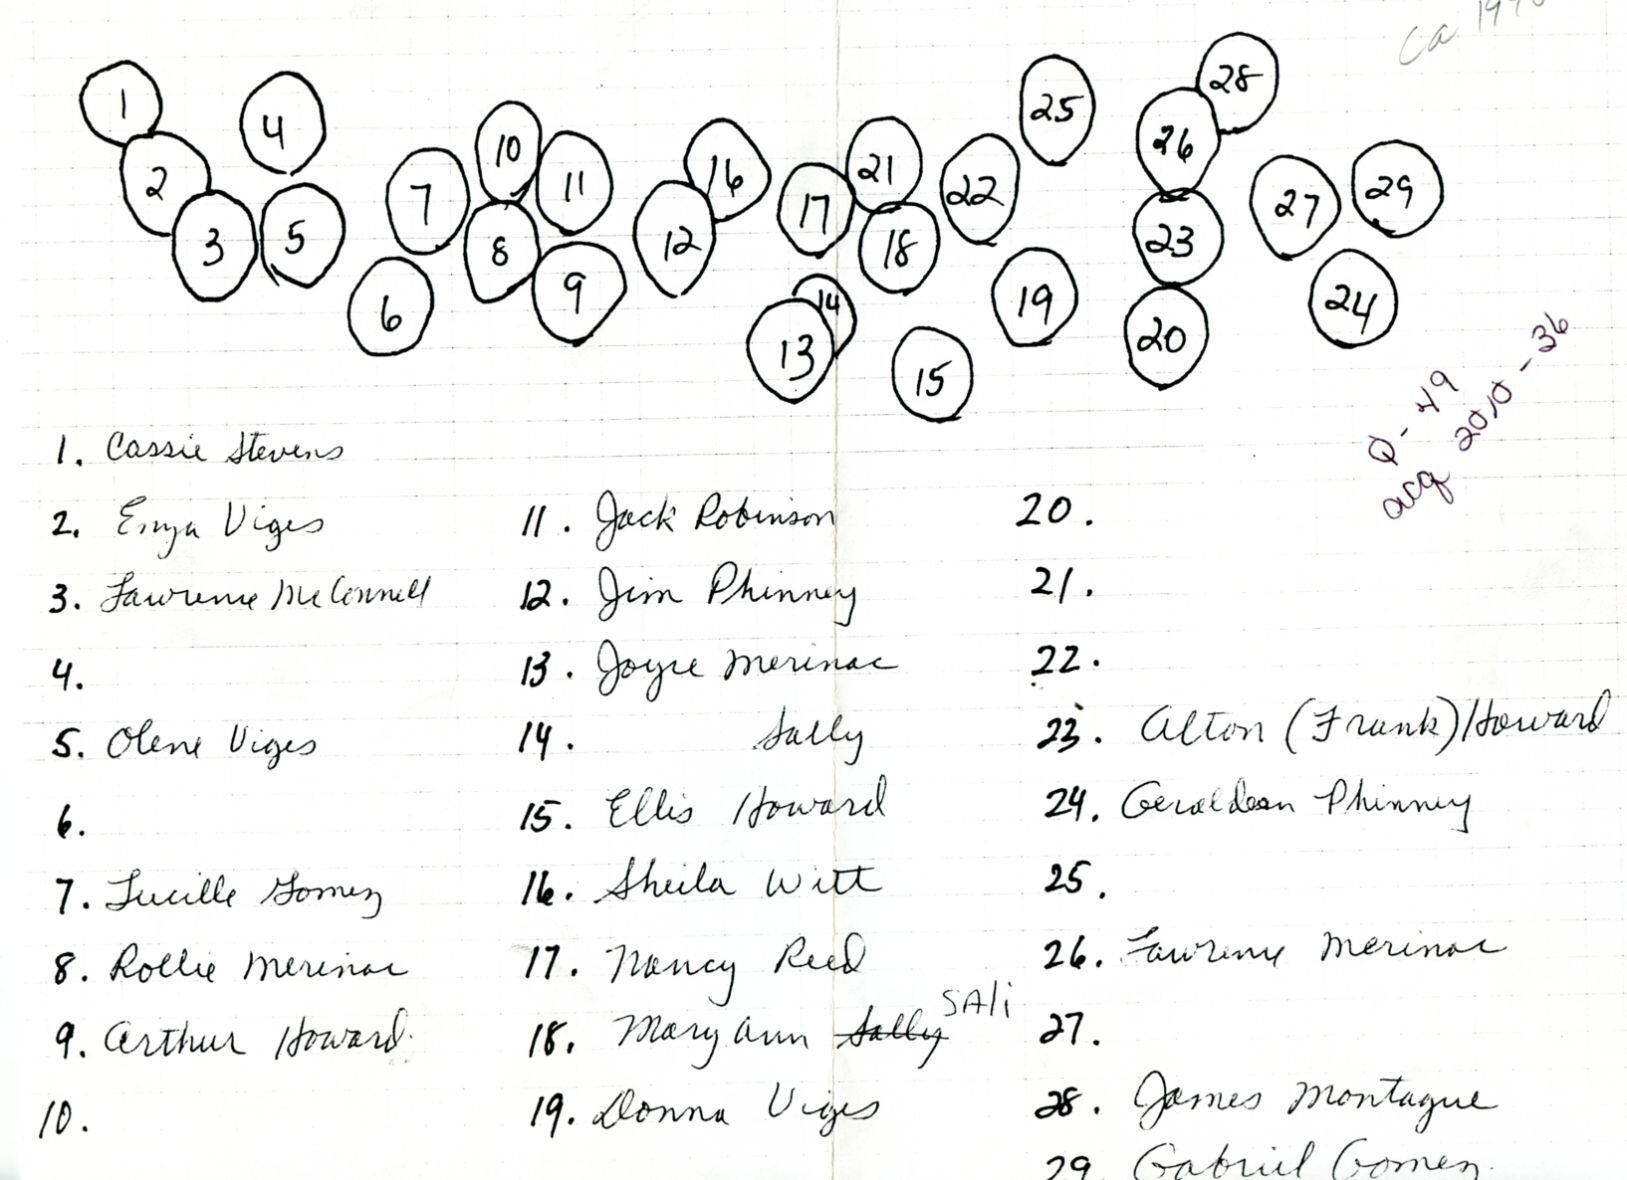 ca 19
28
25
1
4
26
10
21
16
2
11
29
22
7
27
17
5
23
12
3
8
18
9
14
19
24
6
20
13
15
Q-49
acq 2010-36
1. Cassie Stevens
2. Enga Viges
3. Lawrence McConnell
4.
5. Olene Viges
6.
7. Lucille Gomez
8. Rollie Merinac
9. Arthur Howard
10.
11. Jack Robinson
12. Jim Phinney
13. Joyce Merinac
14. Sally
15. Ellis Howard
16. Sheila Witt
17. Nancy Reed
18. Mary Ann Sally SAli
19. Donna Viges
20.
21.
22.
23. Alton (Frank) Howard
24. Geraldean Phinney
25.
26. Lawrence Merinac
27.
28. James Montague
29. Gabriel Gomez